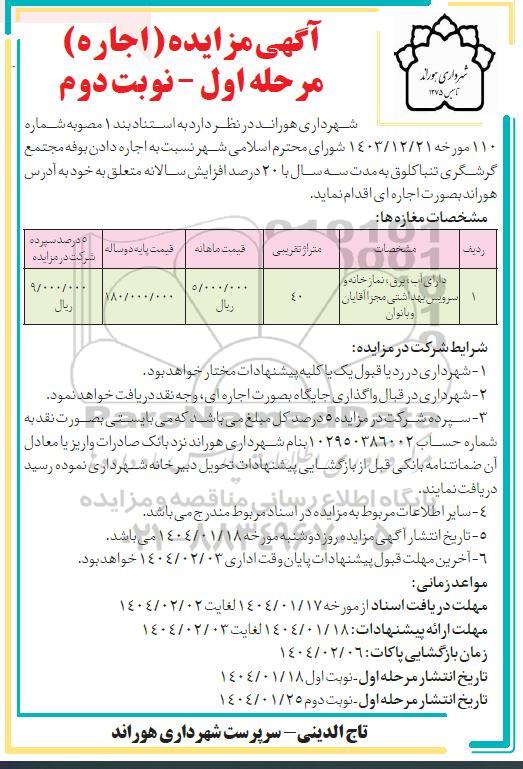 شهرداری هوراند
تاسیس ۱۳۷۵
آگهی مزایده (اجاره)
مرحله اول - نوبت دوم
شهرداری هوراند در نظر دارد به استناد بند ۱ مصوبه شماره
۱۱۰ مورخه ۱۴۰۳/۱۲/۲۱ شورای محترم اسلامی شهر نسبت به اجاره دادن بوفه مجتمع
گرشگری تنباکلوق به مدت سه سال با ۲۰ درصد افزایش سالانه متعلق به خود به آدرس
هوراند بصورت اجاره ای اقدام نماید.
مشخصات مغازه ها:
ردیف مشخصات متراژ تقریبی قیمت ماهانه قیمت پایه دوساله ۵ درصد سپرده شرکت در مزایده
۱ دارای آب، برق، نمازخانه و سرویس بهداشتی مجزا آقایان و بانوان ۴۰ ۵/۰۰۰/۰۰۰ ریال ۱۸۰/۰۰۰/۰۰۰ ۹/۰۰۰/۰۰۰ ریال
شرایط شرکت در مزایده:
۱- شهرداری در رد یا قبول یک یا کلیه پیشنهادات مختار خواهد بود.
۲- شهرداری در قبال واگذاری جایگاه بصورت اجاره ای، وجه نقد دریافت خواهد نمود.
۳- سپرده شرکت در مزایده ۵ درصد کل مبلغ می باشد که می بایستی بصورت نقد به
شماره حساب ۱۰۲۹۵۰۳۸۶۰۰۲ بنام شهرداری هوراند نزد بانک صادرات واریز یا معادل
آن ضمانتنامه بانکی قبل از بازگشایی پیشنهادات تحویل دبیرخانه شهرداری نموده رسید
دریافت نمایند.
۴- سایر اطلاعات مربوط به مزایده در اسناد مربوط مندرج می باشد.
۵- تاریخ انتشار آگهی مزایده روز دوشنبه مورخه ۱۴۰۴/۰۱/۱۸ می باشد.
۶- آخرین مهلت قبول پیشنهادات پایان وقت اداری ۱۴۰۴/۰۲/۰۳ خواهد بود.
مواعد زمانی:
مهلت دریافت اسناد از مورخه ۱۴۰۴/۰۱/۱۷ لغایت ۱۴۰۴/۰۲/۰۲
مهلت ارائه پیشنهادات: ۱۴۰۴/۰۱/۱۸ لغایت ۱۴۰۴/۰۲/۰۳
زمان بازگشایی پاکات: ۱۴۰۴/۰۲/۰۶
تاریخ انتشار مرحله اول - نوبت اول ۱۴۰۴/۰۱/۱۸
تاریخ انتشار مرحله اول - نوبت دوم ۱۴۰۴/۰۱/۲۵
تاج الدینی - سرپرست شهرداری هوراند
پایگاه اطلاع رسانی مناقصه و مزایده